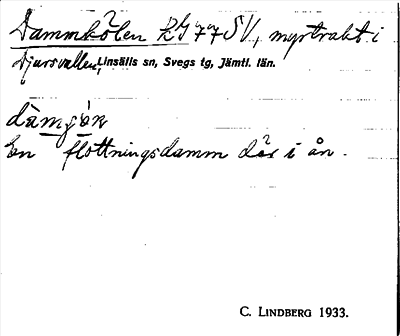 Dammkölen RG 77 SV, myrtrakt i
Djursvallen, Linsälls sn, Svegs tg, Jämtl. län.
En flottningsdamm där i ån.
C. LINDBERG 1933.